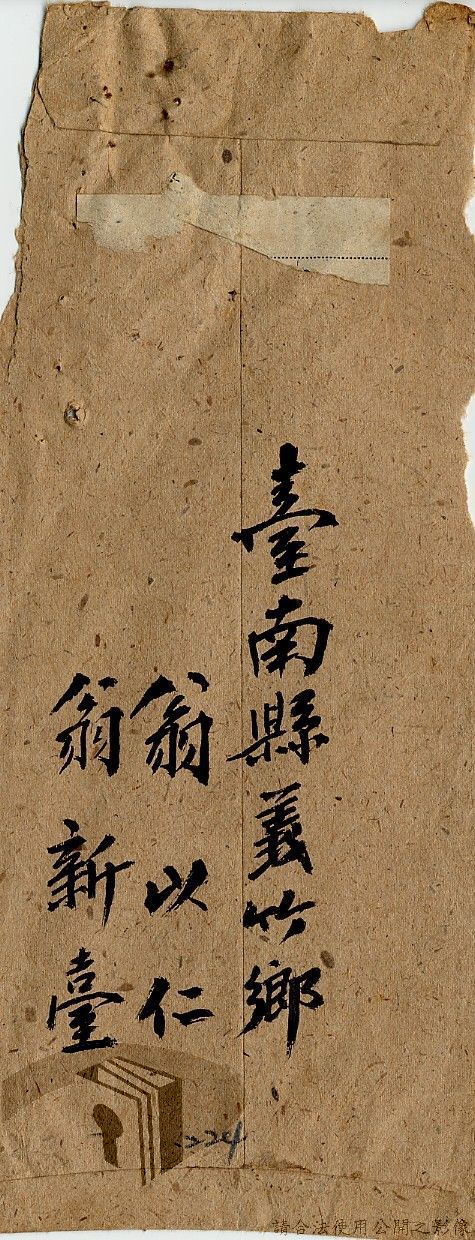 臺南縣義竹鄉
翁以仁
翁新臺
224
請合法使用公開之影像